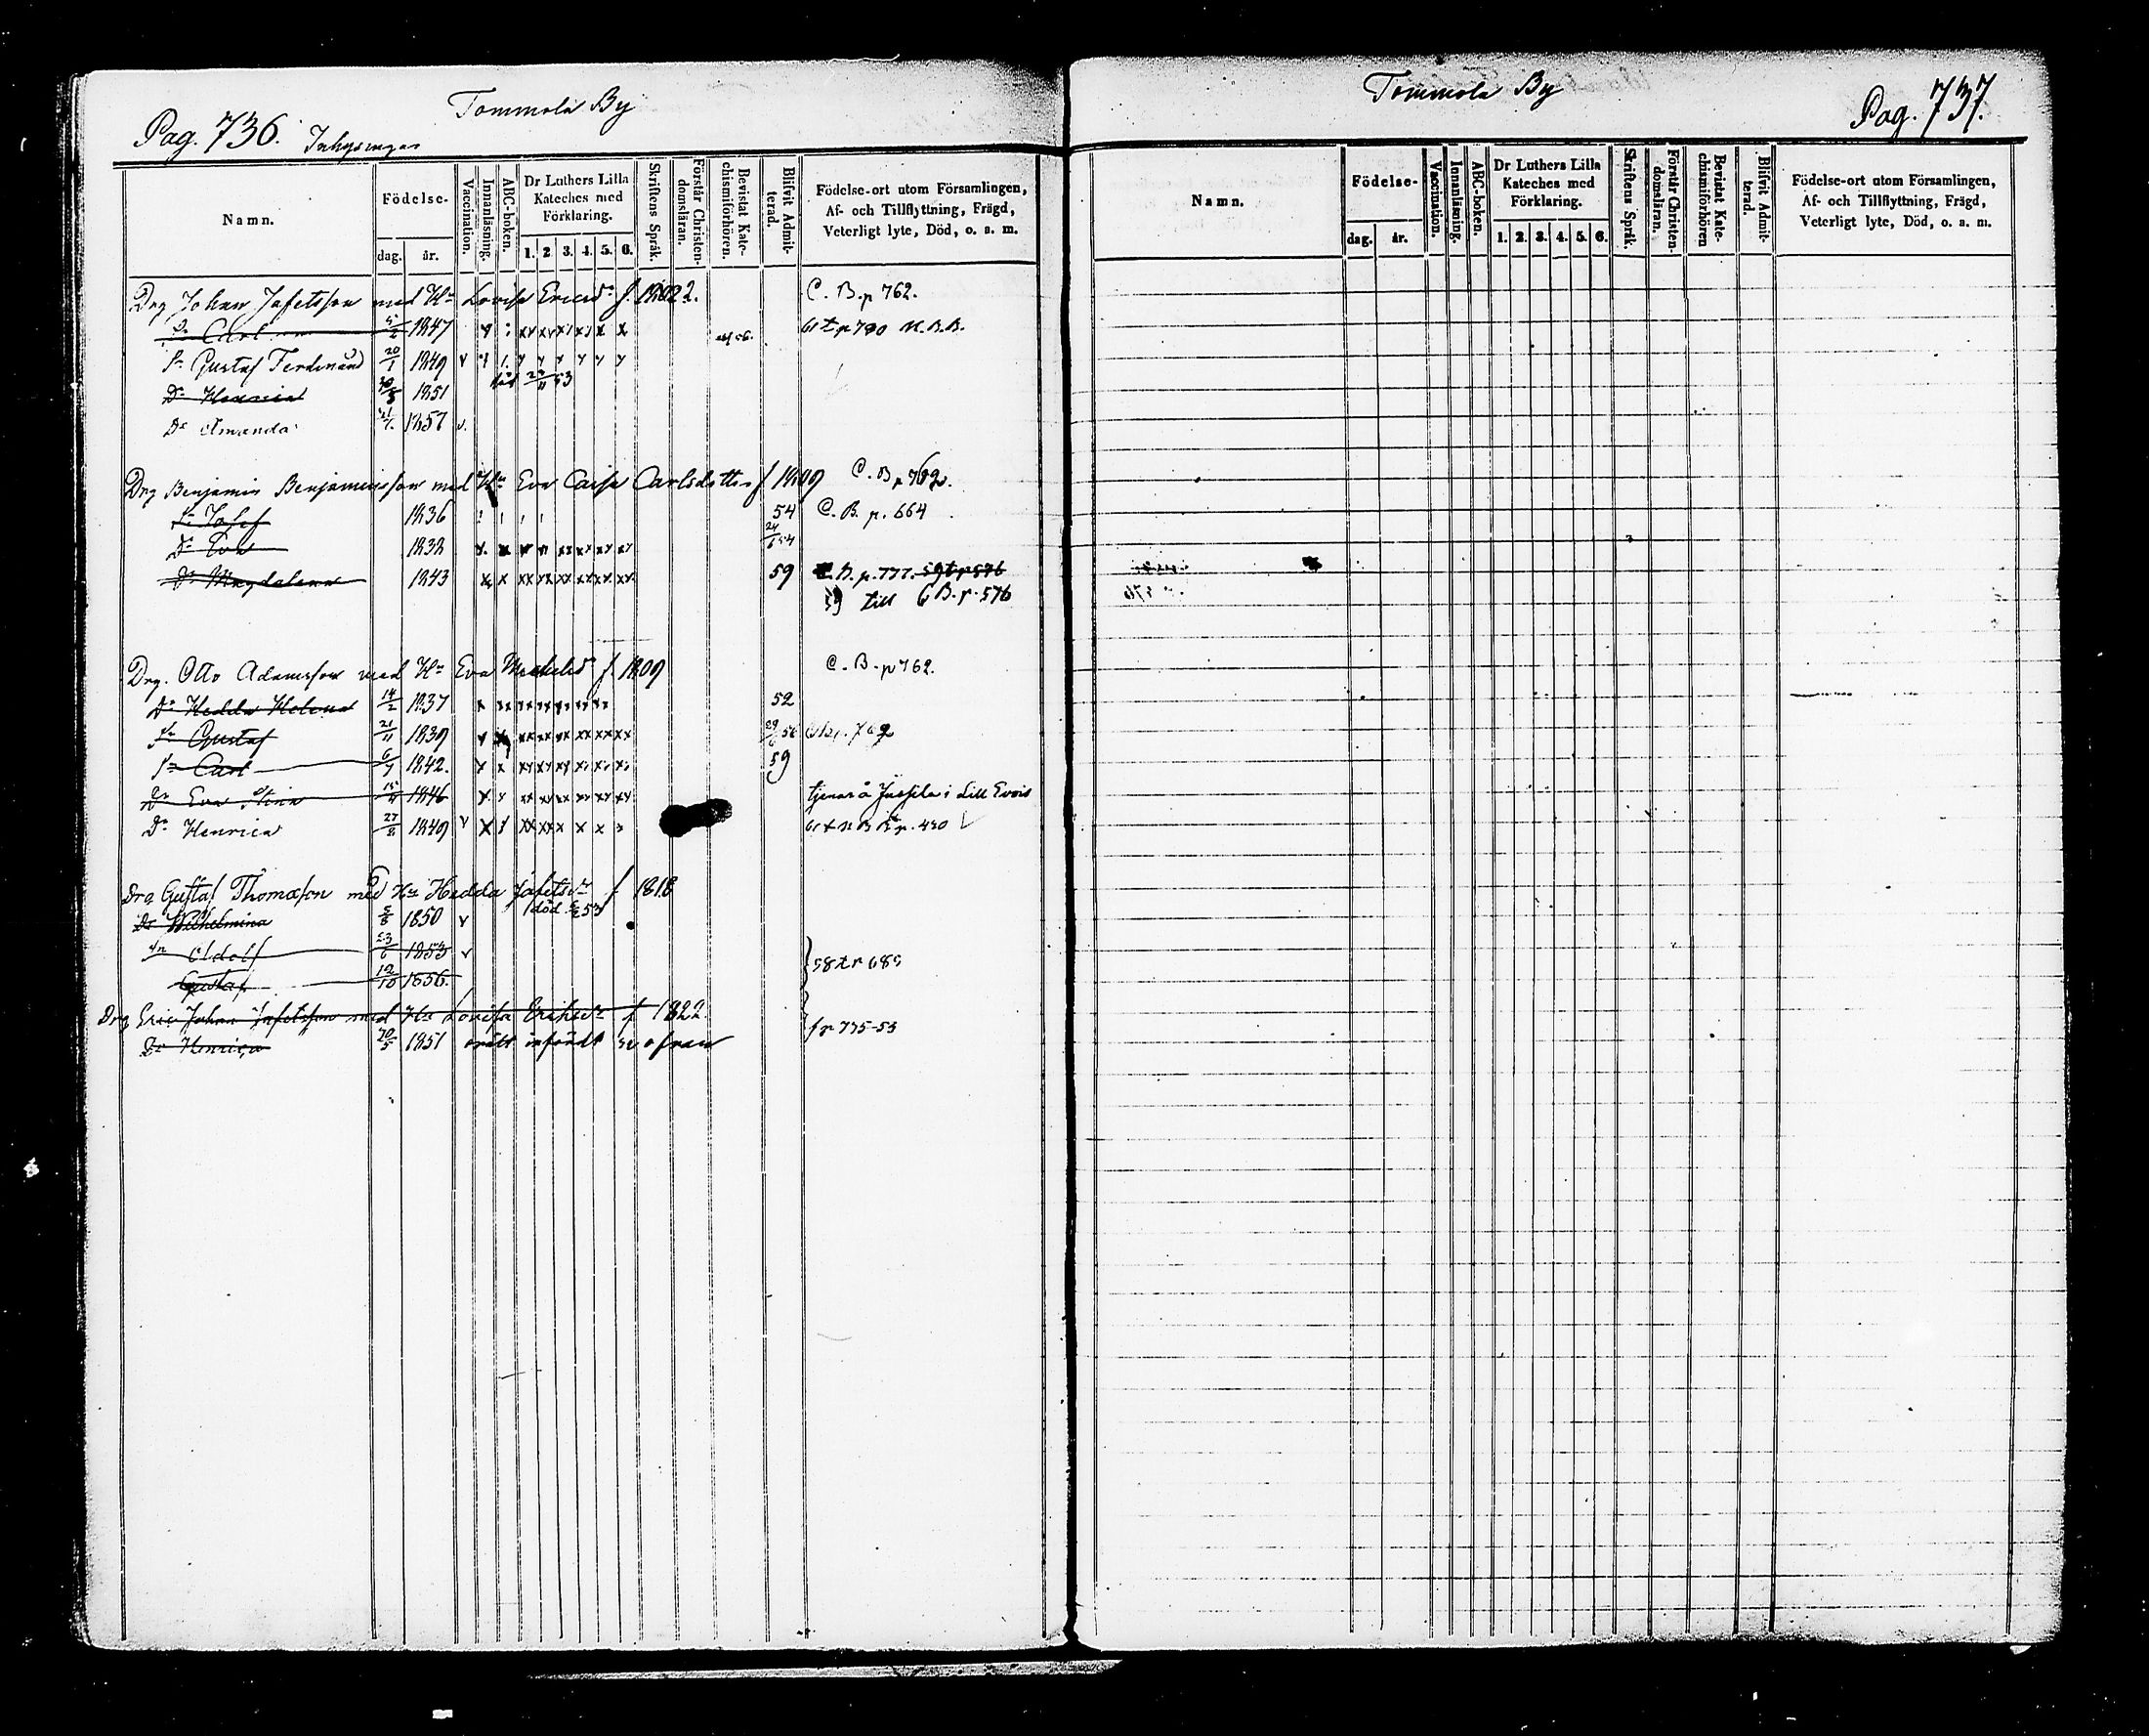 Tommola By
Pag. 736. Inhysingar
Namn.
Födelse-
dag.
år.
Vaccination.
Innanläsning.
ABC-boken.
Dr Luthers Lilla Kateches med Förklaring.
1. 2. 3. 4. 5. 6.
Skriftens Språk.
Förstår Christendomsläran.
Bevistat Katechismiförhören.
Blifvit Admitterad.
Födelse-ort utom Församlingen, Af- och Tillflyttning, Frägd, Veterligt lyte, Död, o. s. m.
Drg Johan Jafetsson med Hu Lovisa Ericsdr f. 1822. C. B. p 762.
Sn Carl 1847 61 t p 790 N.B.B.
Sn Gustaf Ferdinand 20/1 1849
Dr Henrica 20/5 1851 död 53
Dr Amanda 1857
Drg Benjamin Benjaminsson med Hu Eva Caisa Carlsdotter f 1809 C. B p 762.
Sn Josef 1836 54 C. B. p. 664
Dr Eva 1838 24/6 54
Dr Magdalena 1843 59 p. 777. 59 t p 576
59 till C B. p. 576
Drg. Otto Adamsson med Hu Eva Michelsdr f. 1809 C. B. p 762.
Dr Hedda Helena 14/2 1837 52
Sn Gustaf 21/11 1839 56
Sn Carl 6/7 1842. 59
Dr Eva Stina 1846 tjenar å Jussila i Lill Evois
Dr Henrica 27/8 1849 61 t N B B p. 430
Drg Gustaf Thomasson med Hu Hedda Jafetsdr f 1818
Dr Wilhelmina 5/8 1850 död 53
Sn Adolf 23/6 1853 58 t p 685
Gustaf 12/10 1856.
Drg Eric Johan Jafetsson med Hu Lovisa Eriksdr f 1822.
Dr Henrica 20/5 1851 orätt infördt se ofvan fr 735-53
Tommola By
Pag. 737.
Namn.
Födelse-
dag.
år.
Vaccination.
Innanläsning.
ABC-boken.
Dr Luthers Lilla Kateches med Förklaring.
1. 2. 3. 4. 5. 6.
Skriftens Språk.
Förstår Christendomsläran.
Bevistat Katechismiförhören
Blifvit Admitterad.
Födelse-ort utom Församlingen, Af- och Tillflyttning, Frägd, Veterligt lyte, Död, o. s. m.